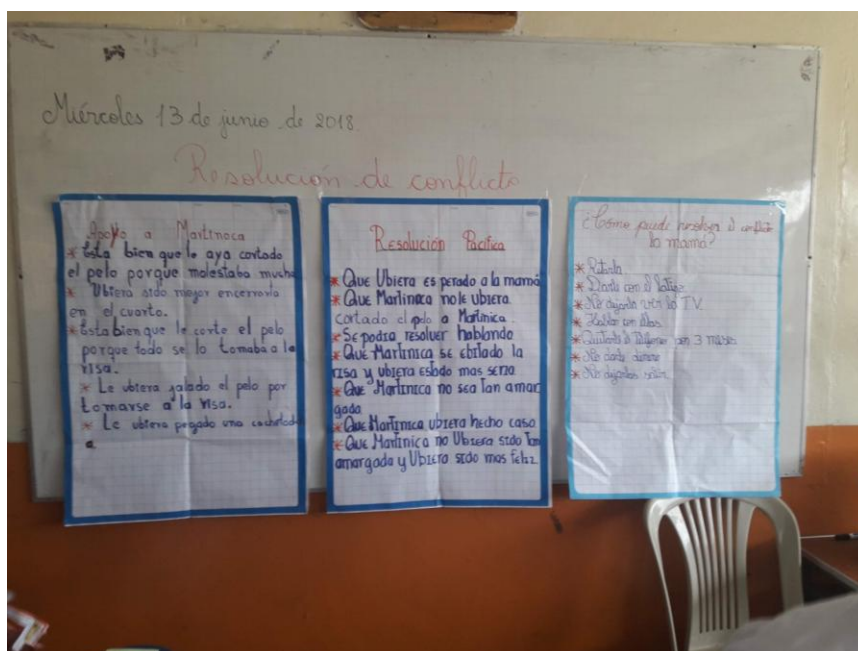 Miércoles 13 de junio de 2018.
Resolución de conflicto
Apoyo a Martinoca
* Esta bien que le aya cortado
el pelo porque molestaba mucho
* Ubiera sido mejor encerrarla
en el cuarto.
* Esta bien que le corte el pelo
porque todo se lo tomaba a la
risa.
* Le ubiera jalado el pelo por
tomarse a la risa.
* Le ubiera pegado una cachetada
a
Resolución Pacifica
* Que Ubiera esperado a la mamá
* Que Martinoca no le ubiera
cortado el pelo a Martinica.
* Se podia resolver hablando
* Que Martinica se ebitado la
risa y ubiera estado mas seria
* Que Martinica no sea tan amar
gada
* Que Martinica ubiera hecho caso
* Que Martinica no Ubiera sido tan
amargada y Ubiera sido mas feliz
¿Cómo puede resolver el conflicto
la mamá?
* Retarla
* Darla con el látigo
* No dejarla ver la TV.
* Hablar con ellas
* Quitarle el teléfono por 3 meses
* No darle dinero
* No dejarlas salir